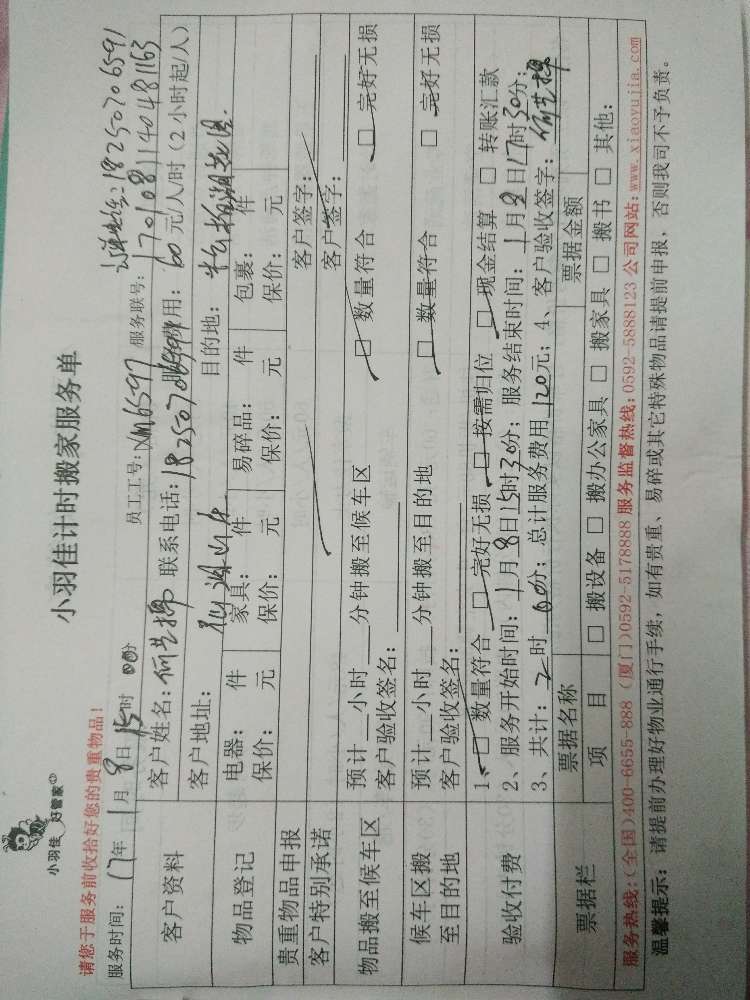 小羽佳 好管家
小羽佳计时搬家服务单
请您于服务前收拾好您的贵重物品!
订单电话:18250706591
服务时间: 17年 1月 8日 15时 00分 员工工号: XM6597 服务联号: 1701081140481163
客户资料 客户姓名: 联系电话: 18250706591 服务费用: 60元/人/时 (2小时起/人)
客户地址: 目的地:
物品登记 电器: 件 家具: 件 易碎品: 件 包裹: 件
保价: 元 保价: 元 保价: 元 保价: 元
贵重物品申报 客户签字:
客户特别承诺 客户签字:
物品搬至候车区 预计__小时__分钟搬至候车区 □ 数量符合 □ 完好无损
客户验收签名:
候车区搬至目的地 预计__小时__分钟搬至目的地 □ 数量符合 □ 完好无损
客户验收签名:
验收付费 1、□ 数量符合 □ 完好无损 □ 按需归位 □ 现金结算 □ 转账汇款
2、服务开始时间: 1月8日15时30分; 服务结束时间: 1月8日17时30分;
3、共计: 2时 60分; 总计服务费用 120元; 4、客户验收签字:
票据栏 票据名称 票据金额
项 目 □ 搬设备 □ 搬办公家具 □ 搬家具 □ 搬书 □ 其他:
服务热线:(全国)400-6655-888 (厦门)0592-5178888 服务监督热线:0592-5888123 公司网站:www.xiaoyujia.com
温馨提示: 请提前办理好物业通行手续, 如有贵重、易碎或其它特殊物品请提前申报, 否则我司不予负责。